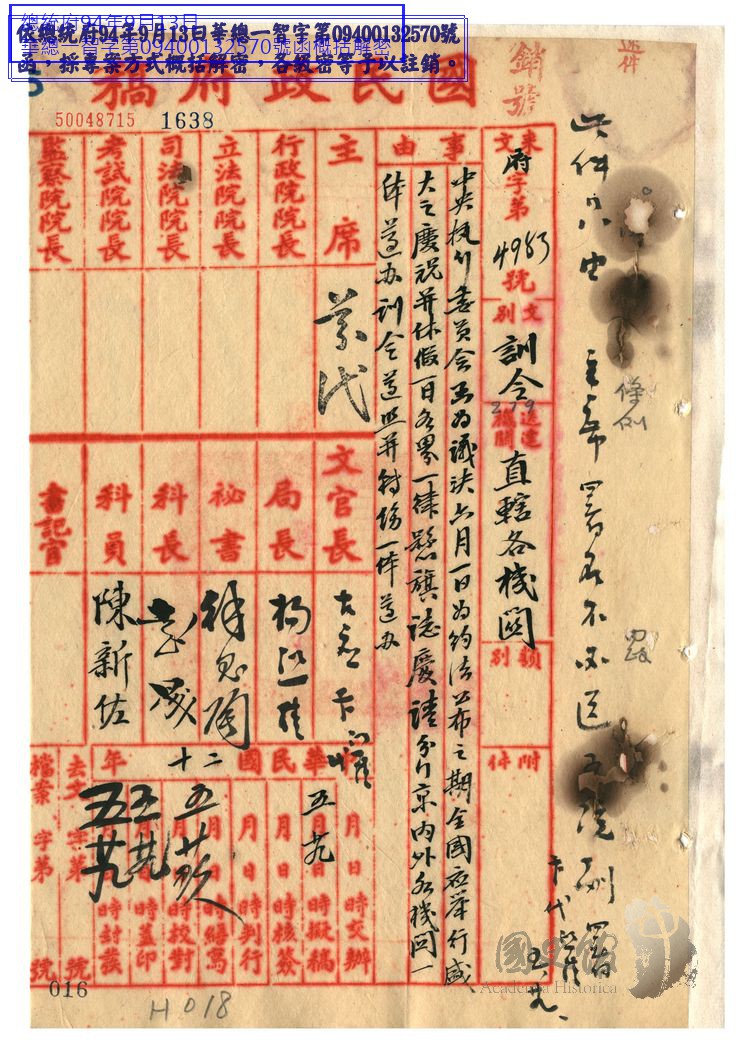 總統府94年9月13日
華總一智字第09400132570號函概括解密
依總統府94年9月13日華總一智字第09400132570號
函，採專案方式概括解密，各級密等予以註銷。
國民政府稿
50048715
1638
銷號
此件只由
主席署名不必送五院副署
條例
來文
府字第4983號
文別
訓令
279
送達機關
直轄各機關
類別
附件
事由
中央執行委員會函為議決六月一日為約法公布之期全國應舉行盛
大之慶祝并休假一日各界一律懸旗誌慶請分行京內外各機關一
体遵办訓令遵照并轉飭一体遵办
主席
行政院院長
立法院院長
司法院院長
考試院院長
監察院院長
文官長
局長
秘書
科長
科員
陳新佐
書記官
中華民國二十年
月日時交辦
五 月 日時擬稿
月日時核簽
月日時判行
月日時繕寫
五 月 日時校對
五 月 日時蓋印
五 月 日時封發
去文 字第 號
檔案 字第 號
016
H018
國史館
Academia Historica